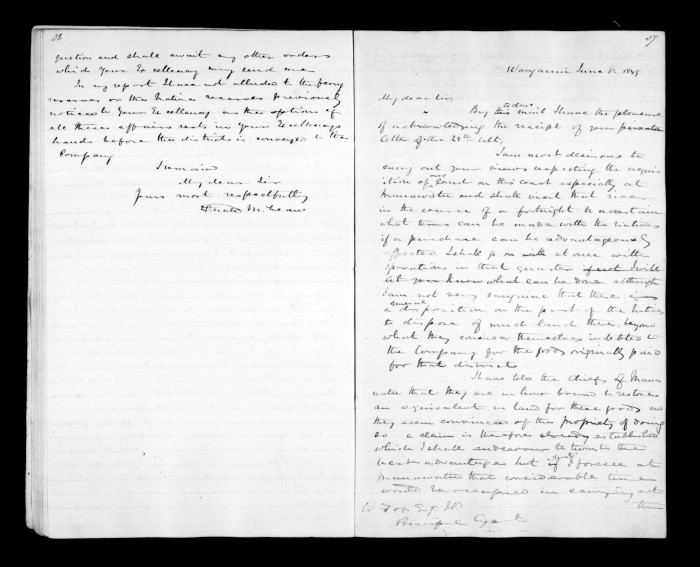 36
question and shall await any other orders
which Your Excellency may send me
In my report I have not alluded to the ferry
reserves or the Native reserves previously
noticed to Your Excellency as the options of
all these affairs rests in Your Excellencys
hands before the district is conveyed to the
Company
I remain
My dear Sir
Yours most respectfully
Donald McLean
37
Wanganui June 5. 1849
My dear Sir.
By todays mail I have the pleasure
of acknowledging the receipt of your
letter of the 24th Ult.
I am most desirous to
carry out your views respecting the acquis
ition of more land on this coast especially at
Manawatu and shall visit that river
in the course of a fortnight to ascertain
what terms can be made with the Natives
if a purchase can be advantageously
effected I shall go on with at once with
operations in that quarter if not I will
let you know what can be done although
I am not very sanguine that there is
a general disposition on the part of the Natives
to dispose of much land there, beyond
what they consider themselves indebted to
the Company for the goods originally paid
for that district
I have told the chiefs of Mana
watu that they are in honor bound to restore
an equivalent in land for these goods and
they seem convinced of the propriety of doing
so a claim is therefore already established
which I shall endeavour to turn to the
best advantage but I foresee at
Manawatu that considerable time
would be occupied in carrying out
the
W Fox Esq J.P.
Principal Agent